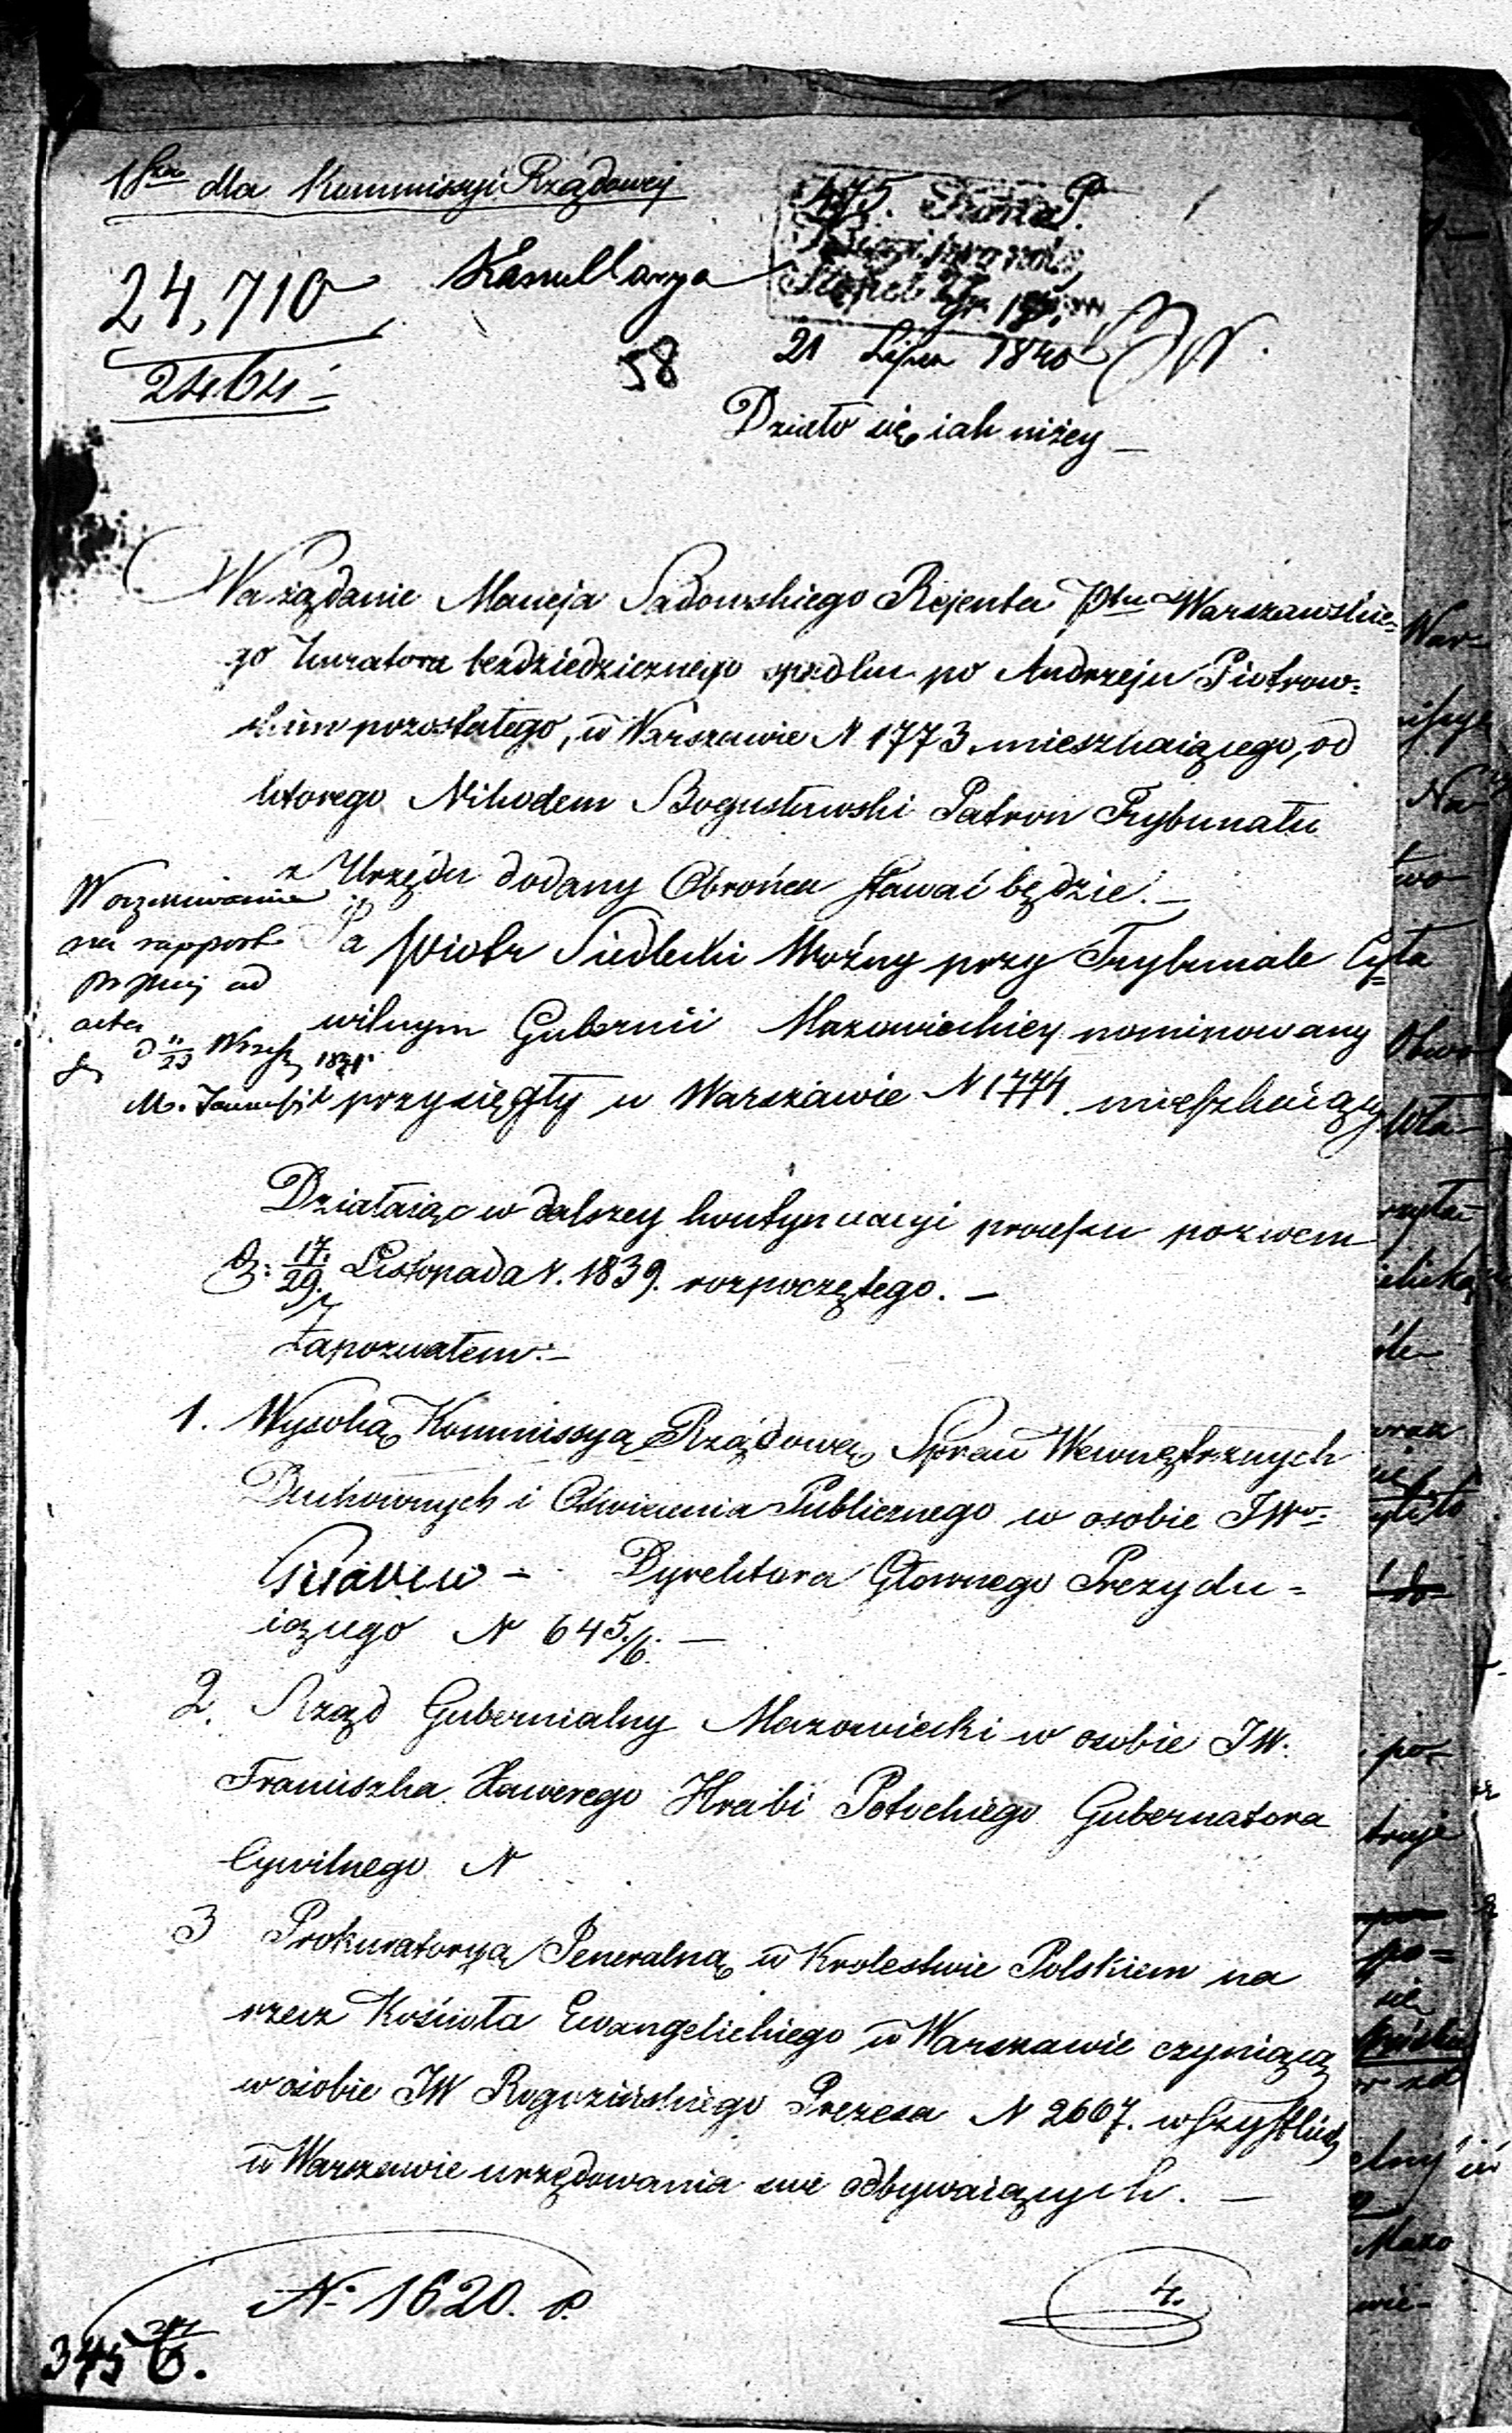 dla Kommissyi Rządowej
24,710
58
21 Lipca 1840
Działo się iak niżey —
Na żądanie Macieja Sadowskiego Rejenta Ptu Warszawskie=
go Kuratora bezdziedzicznego spadku po Andrzeju Piotrow=
skim pozostałego, w Warszawie N 1773 mieszkaiącego, od
którego Nikodem Bogusławski Patron Trybunału
z Urzędu dodany Obrońca stawać będzie. —
Ja Piotr Siedlecki Woźny przy Trybunale Cy=
wilnym Gubernii Mazowieckiey nominowany
przysięgły w Warszawie N 1774. mieszkaiący
na rapport
Działaiąc w dalszey kontynuacyi processu pozwem
D: 17/29 Listopada r. 1839. rozpoczętego. —
Zapozwałem: —
1. Wysoką Kommissyą Rządową Spraw Wewnętrznych
Duchownych i Oświecenia Publicznego w osobie JW
— Dyrektora Głownego Prezydu=
iącego N 645/6. —
2. Rząd Gubernialny Mazowiecki w osobie JW.
Franciszka Xawerego Hrabi Potockiego Gubernatora
Cywilnego N
3 Prokuratoryą Jeneralną w Krolestwie Polskiem na
rzecz Kościoła Ewangelickiego w Warszawie czyniącą
w osobie JW Rogozińskiego Prezesa N 2667. wszystkich
w Warszawie urzędowania swe odbywaiących. —
N 1620.
4.
345